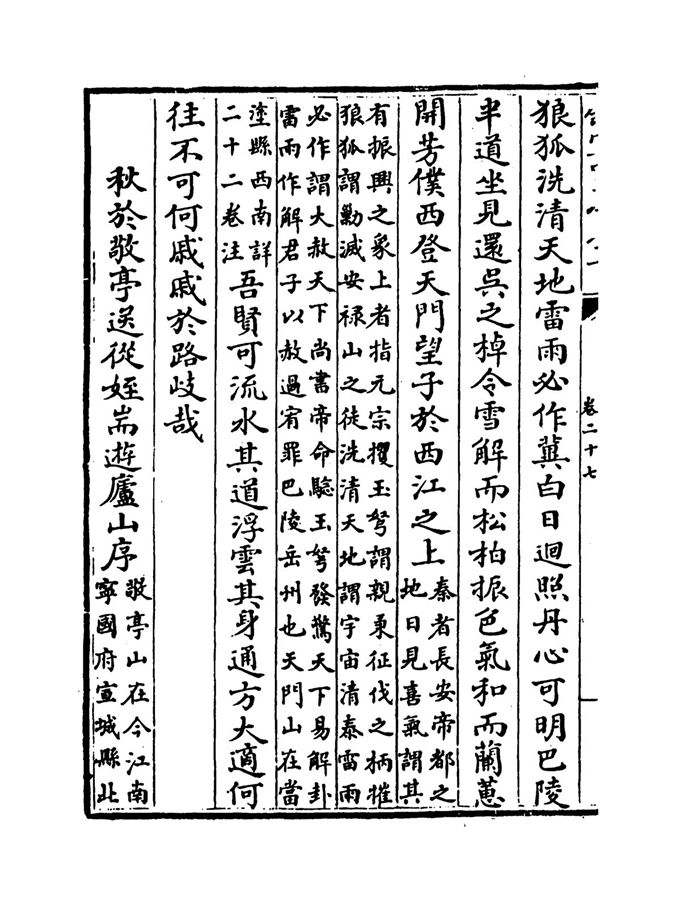 卷二十七
狼狐洗清天地雷雨必作冀白日迴照丹心可明巴陵
半道坐見還吳之棹令雪解而松柏振色氣和而蘭蕙
開芳僕西登天門望子於西江之上秦者長安帝都之
地日見喜氣謂其
有振興之象上者指元宗攫玉弩謂親秉征伐之柄摧
狼狐謂勦滅安禄山之徒洗清天地謂宇宙清泰雷雨
必作謂大赦天下尚書帝命驗玉弩發驚天下易解卦
雷雨作解君子以赦過宥罪巴陵岳州也天門山在當
塗縣西南詳
二十二卷注
吾賢可流水其道浮雲其身通方大適何
往不可何戚戚於路歧哉
秋於敬亭送從姪耑遊廬山序敬亭山在今江南
寧國府宣城縣北